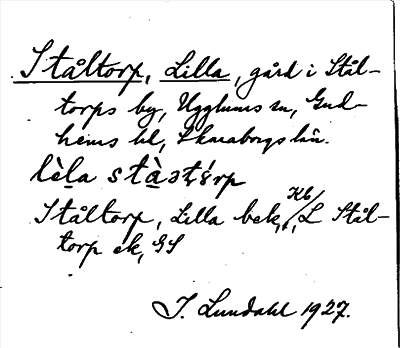 Ståltorp, Lilla, gård i Stål-
torps by, Ugglums sn, Gud-
hems hd, Skaraborgs län.
lèla stàət
Ståltorp, Lilla bek, Kb/L Stål-
torp ek, GS
J. Lundahl 1927.